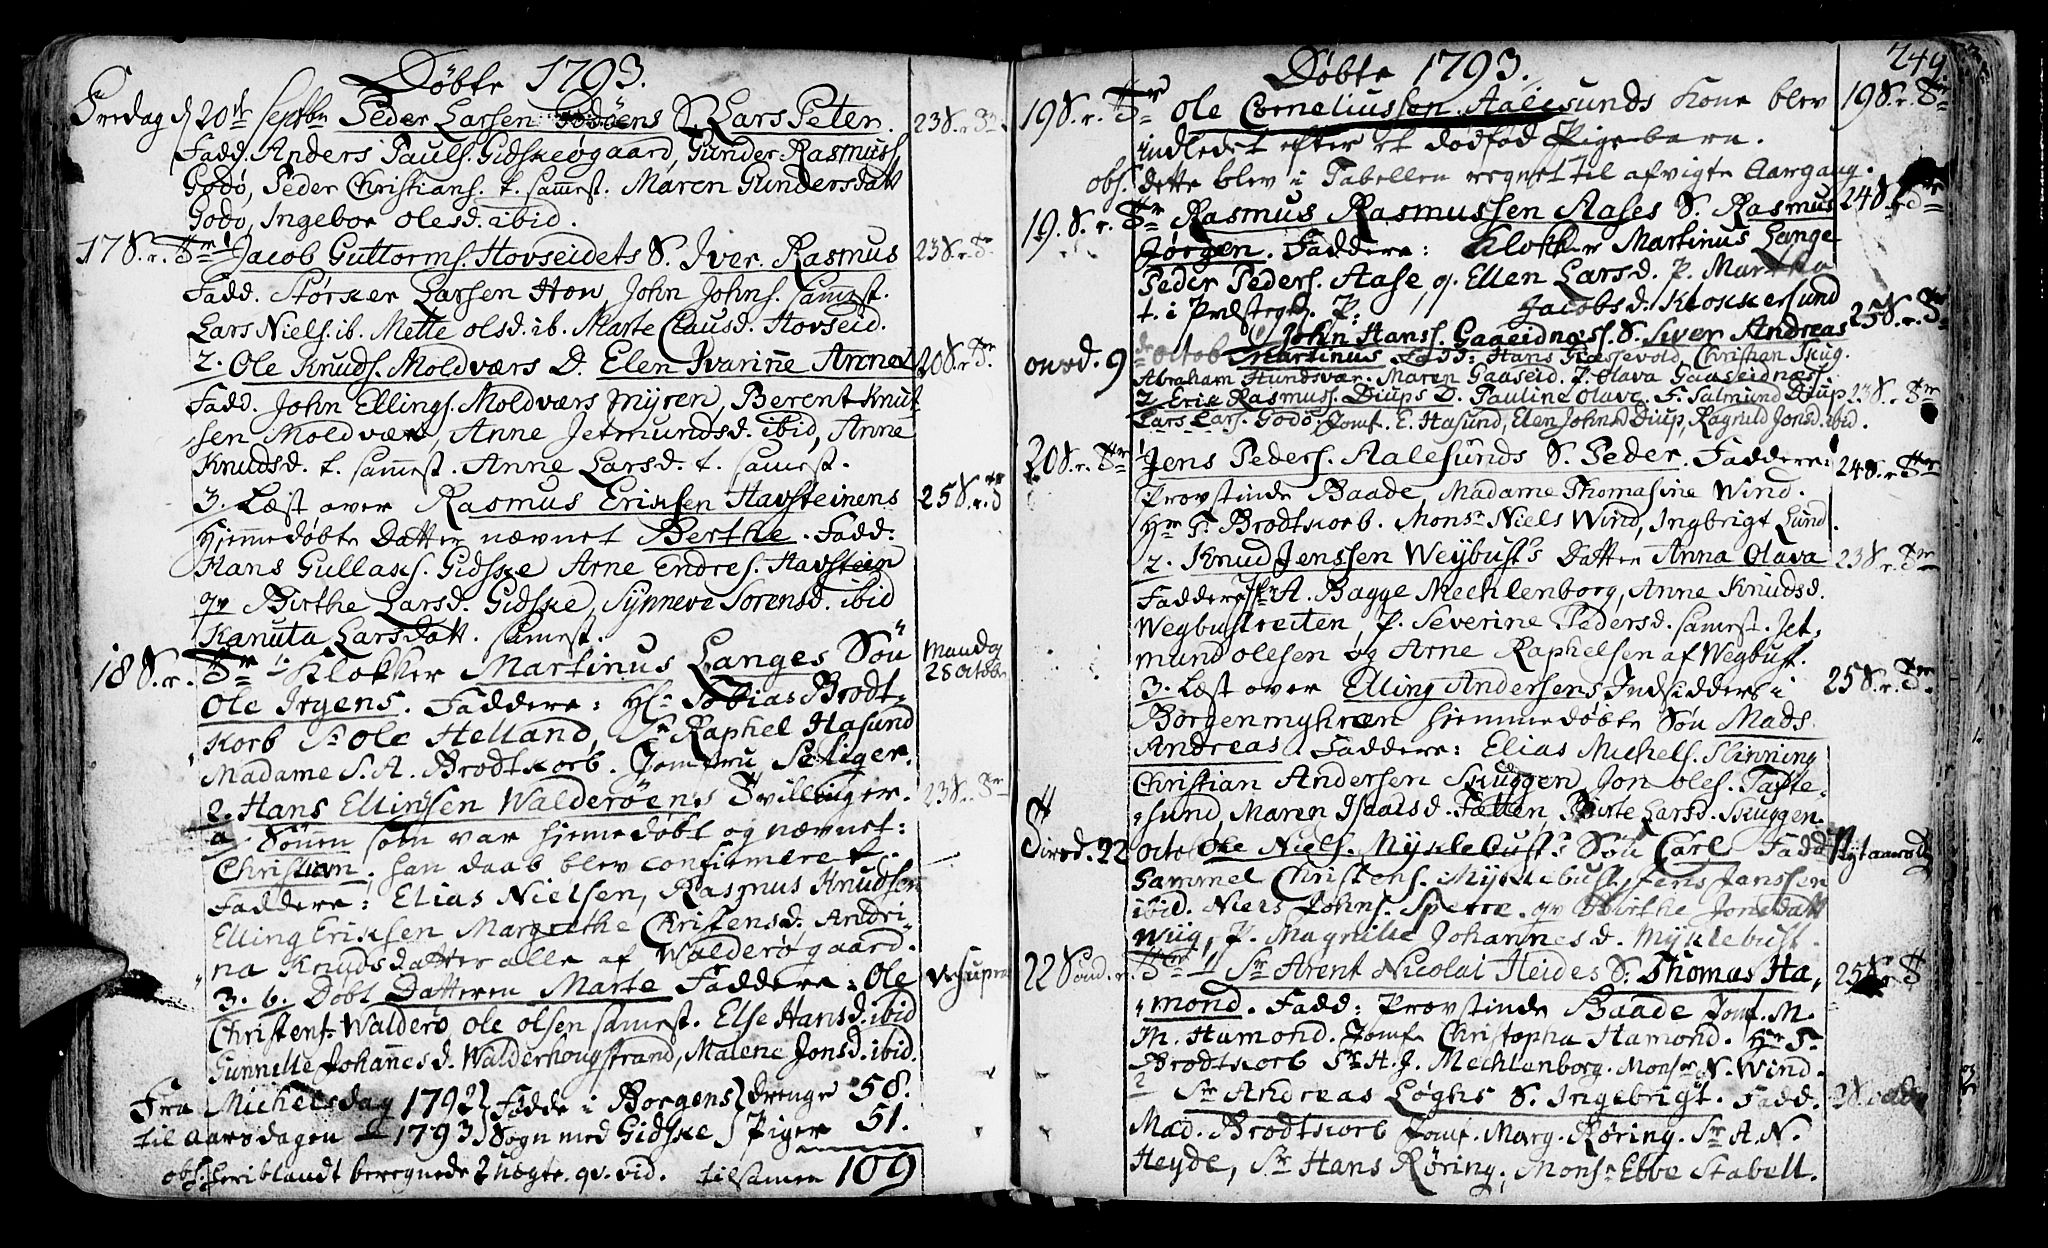 Døbte 1793.
Fredag d 20de Septbr Peder Larsen Godöens S. Lars Peter. 23 S. r. Tr.
Fadd. Anders Pauls. Gidskeøgaard, Gunder Rasmuss.
Godø, Peder Christians. t. sammest. Maren Gundersdatt
Godø, Ingebor olesd. ibid.
17 S. r. Tr. 1 Jacob Guttorms. Hovseidets S. Iver Rasmus 23 S. r. Tr.
Fadd. Størker Larsen How, John Johns. sammest.
Lars Niels. ib. Mette olsd. ib. Marte Clausd. Hovseid.
2. Ole Knuds. Moldværs D. Elen Ivarine Anne 20 S. r. Tr.
Fadd. John Ellings. Moldværs myren, Berent Knut-
sen Moldvær, Anne Jetmundsd. ibid, Anne
Knudsd. t. sammest. Anne Larsd. t. samest.
3. Læst over Rasmus Eriksen Havsteinens 25 S. r. Tr
Hjemmedøbte Datter nævnet Berthe. Fadd:
Hans Gullaks. Gidske Arne Endres. Havstein
qv Birthe Larsd. Gidske, Synneve Sorensd. ibid
Kanuta LarsDatt. samest.
18 S. r. Tr 1. Klokker Martinus Langes Søn Mandag
28 Octobr
Ole Irgens. Faddere: Hr Tobias Brodt-
korb Sr ole Helland, Sr Raphel Hasund
Madame S. A. Brodtkorb. Jomfru Seliger.
2. Hans Ellinsen Walderöens Tvillinger. 23 S. r. Tr
a Sønnen som var hjemedøbt og nævnet:
Christian, han daab blev confirmeret.
Faddere: Elias Nielsen, Rasmus Knudsen
Elling Eriksen Margrethe Christensd. Andri-
na Knudsdatter alle af Walderøgaard.
3. b. Døbt Datteren Marte Faddere: Ole ut supra
Christens. Walderø ole olsen samest. Else Hansd. ibid
Gunnille Johannesd. Walderhougstrand, Malene Jonsd. ibid.
Fra Michelsdag 1792 Fødde i Borgens drenge 58.
til aarsdagen 1793 Sogn med Gidske Piger 51.
obs: heriblandt beregnede 2 uægte. qv. vid. tilsamen 109
Døbte 1793. 249
19 S. r. Tr Ole Corneliussen Aalesunds Kone blev 19 S. r. Tr
indledet efter et dødfød Pigebarn.
obs. dette blev i Tabellen regnet til afvigte Aargang.
19. S. r. Tr Rasmus Rasmussen Aases S. Rasmus 24 S. r. Tr
Jørgen. Faddere: Klokker Martinus Lange
Peder Peders. Aase, q. Ellen Larsd. P. Martha
t. i Præstegd. P. Jacobsd. Klokkersund
onsd. 9 de octob 1) John Hanss. Gaaseidnæss. S. Siver Andreas 25 S. r. Tr
Martinus Fadd: Hans Giæssevold, Christian Skug.
Abraham Hundsvær. Maren Gaaseid. P. Olava Gaaseidnæss.
2 Erik Rasmuss. Diups D. Pauline Olave. F. Salmund Diup 23 S. r. Tr
Lars Lars. Godø. Jomf. E. Hasund, Elen Johnsd Diup, Ragnild Jonsd. ibid.
20 S. r. Tr 1 Jens Peders. Aalesunds S. Peder. Faddere: 24 S. r. Tr
Provstinde Baade, Madame Thomasine Wind.
Hr T. Brodtkorb. Monsr Niels Wind, Ingbrigt Lund.
2. Knud Jenssen Weybust's Datter Anna Olava 23 S. r. Tr
Faddere Sr A. Bagge Mechlenborg, Anne Knudsd.
Wegbustreiten, P. Severine Pedersd. samest. Jet-
mund olesen og Arne Raphelsen af Wegbust.
3. Læst over Elling Andersens Indsidders i 25 S. r. Tr.
Borgenmyhren hjemmedøbte Søn Mads
Andreas. Faddere: Elias Michels. Slinning
Christian Andersen Skuggen, Jon oles. Tafte-
sund, Maren Isaaksd. Fætten, Birte Larsd. Skuggen
Tirsd. 22 Octob Ole Niels. Myklebust's Søn Carl Fadd Nytaarsdg
Gammel Christens. Myklebust, Jens Janssen
ibid. Niels Johns. Sperre, qv Birthe Jonsdatt
Wiig, P. Magnille Johannesd. Myklebust.
22 Sond. r. Tr 1 Sr Arent Nicolai Heides S. Thomas Ha- 25 S. r. T
mond. Fadd: Provstinde Baade Jomf. M.
M. Hamond. Jomf. Christopha Hamond. Hr T.
Brodtkorb Sr H. J. Mechlenborg. Monsr N. Wind.
2 Sr Andreas Løghs S. Ingebrigt. Fadd.
Mad. Brodtkorb Jomf. Marg. Røring. Sr A. N.
Heyde, Sr Hans Røring, Monsr Ebbe Stabell.